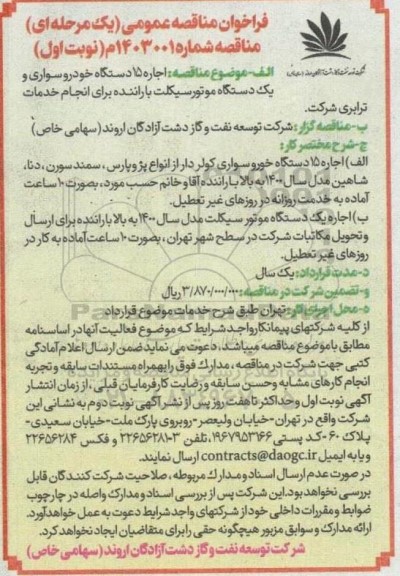 فراخوان مناقصه عمومی (یک مرحله ای)
مناقصه شماره ۱۴۰۳۰۰۱م (نوبت اول)
الف-موضوع مناقصه: اجاره ۱۵ دستگاه خودرو سواری و
یک دستگاه موتورسیکلت با راننده برای انجام خدمات
ترابری شرکت.
ب-مناقصه گزار: شرکت توسعه نفت و گاز دشت آزادگان اروند (سهامی خاص)
ج-شرح مختصر کار:
الف) اجاره ۱۵ دستگاه خورو سواری کولر دار از انواع پژو پارس، سمند سورن، دنا،
شاهین مدل سال ۱۴۰۰ به بالا با راننده آقا و خانم حسب مورد، بصورت ۱۰ ساعت
آماده به خدمت روزانه در روزهای غیر تعطیل.
ب) اجاره یک دستگاه موتور سیکلت مدل سال ۱۴۰۰ به بالا با راننده برای ارسال
و تحویل مکاتبات شرکت در سطح شهر تهران، بصورت ۱۰ ساعت آماده به کار در
روزهای غیر تعطیل.
د-مدت قرارداد: یک سال
و-تضمین شرکت در مناقصه: ۳/۸۷۰/۰۰۰/۰۰۰ ریال
ه-محل اجرای کار: تهران طبق شرح خدمات موضوع قرارداد
از کلیه شرکتهای پیمانکار واجد شرایط که موضوع فعالیت آنها در اساسنامه
مطابق با موضوع مناقصه میباشد، دعوت می نماید ضمن ارسال اعلام آمادگی
کتبی جهت شرکت در مناقصه، مدارک فوق را بهمراه مستندات سابقه و تجربه
انجام کارهای مشابه و حسن سابقه و رضایت کارفرمایان قبلی، از زمان انتشار
آگهی نوبت اول و حداکثر تا هفت روز پس از نشر آگهی نوبت دوم به نشانی این
شرکت واقع در تهران-خیابان ولیعصر-روبروی پارک ملت-خیابان سعیدی-
پلاک ۶۰-کد پستی ۱۹۶۷۹۵۳۱۶۶، تلفن ۳-۲۲۶۵۶۲۸۱ و فکس ۲۲۶۵۶۲۸۴
و یا به ایمیل contracts@daogc.ir ارسال نمایند.
در صورت عدم ارسال اسناد و مدارک مربوطه، صلاحیت شرکت کنندگان قابل
بررسی نخواهد بود. این شرکت پس از بررسی اسناد و مدارک واصله در چارچوب
ضوابط و مقررات داخلی خود از شرکتهای واجد شرایط دعوت به عمل خواهد آورد.
ارائه مدارک و سوابق مزبور هیچگونه حقی را برای متقاضیان ایجاد نخواهد کرد.
شرکت توسعه نفت و گاز دشت آزادگان اروند (سهامی خاص)